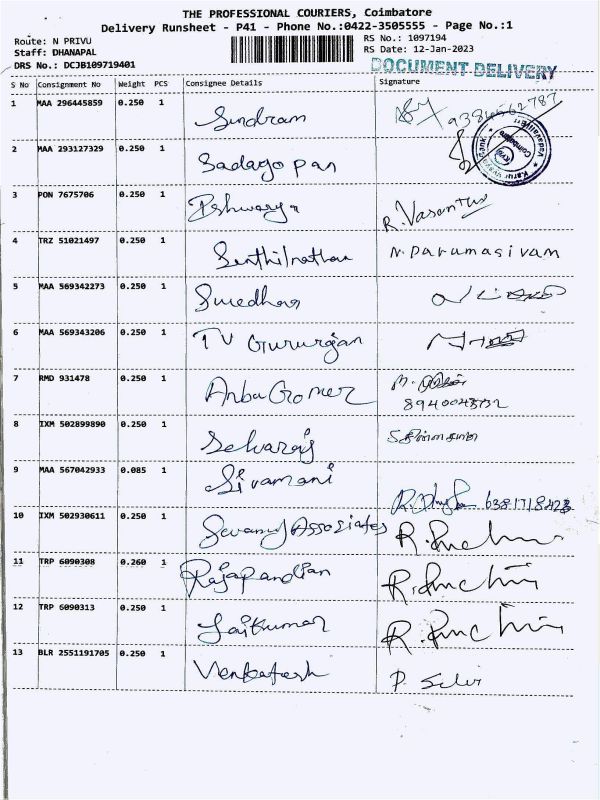 THE PROFESSIONAL COURIERS, Coimbatore
Delivery Runsheet - P41 - Phone No.:0422-3505555 - Page No.:1
Route: N PRIVU RS No.: 1097194
Staff: DHANAPAL RS Date: 12-Jan-2023
DRS No.: DCJB109719401 DOCUMENT DELIVERY
S No Consignment No Weight PCS Consignee Details Signature
1 MAA 296445859 0.250 1 Sundram
2 MAA 293127329 0.250 1 Sadagopan
Karur Vysya Bank
KVB
Coimbatore
3 PON 7675706 0.250 1 Ishwarya R. Vasantha
4 TRZ 51021497 0.250 1 Senthilnathan N. Paramasivam
5 MAA 569342273 0.250 1
6 MAA 569343206 0.250 1 TV Gururajan
7 RMD 931478 0.250 1 Anbu Gomez
8 IXM 502899890 0.250 1 Selvaraj
9 MAA 567042933 0.085 1 Sivamani
10 IXM 502930611 0.250 1 Associates
11 TRP 6090308 0.260 1 Rajapandian
12 TRP 6090313 0.250 1 Jaikumar
13 BLR 2551191705 0.250 1 Venkatesh P. Selvi